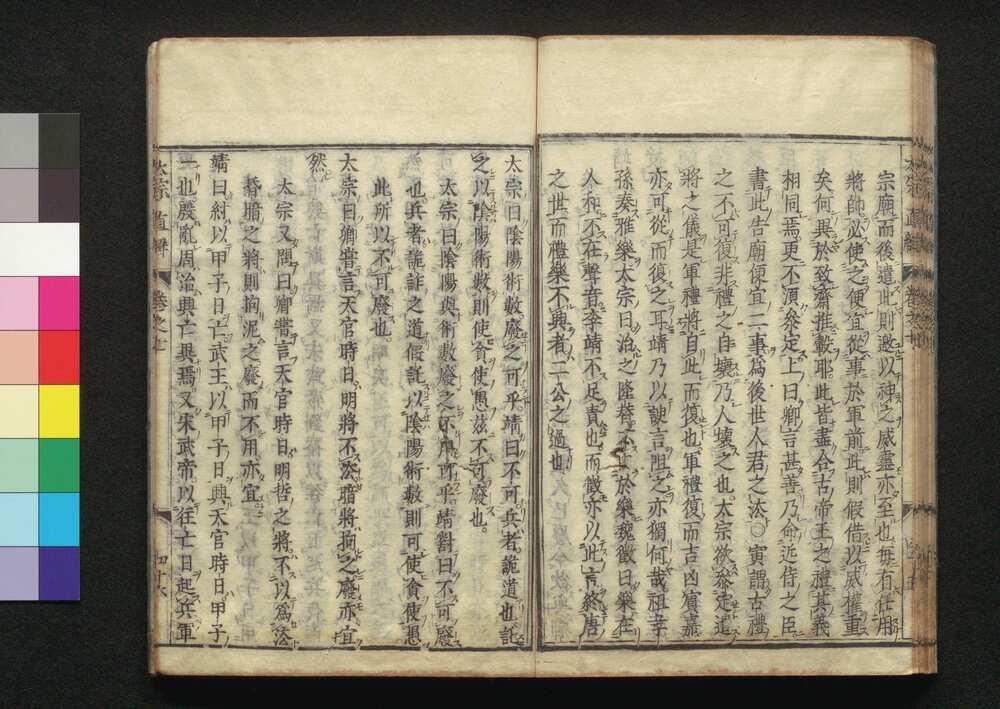 宗廟而後遣此則邀以神之威靈亦至也每有任用
將帥必使之便宜從事於軍前此則假借以威權重
矣何異於致齋推轂耶此皆盡合古帝王之禮其義
相同焉更不須叅定上曰卿言甚善乃命近侍之臣
書此告廟便宜二事爲後世人君之法○寅謂古禮
之不可復非禮之自壞乃人壞之也太宗欲叅定遣
將之儀是軍禮將自此而復也軍禮復而吉凶賓嘉
亦可從而復之耳靖乃以諛言阻之亦獨何哉祖孝
孫奏雅樂太宗曰治之隆替不由於樂魏徵曰樂在
人和不在聲音李靖不足責也而徵亦以此言終唐
之世而禮樂不興者二公之過也
太宗曰陰陽術數廢之可乎靖曰不可兵者詭道也託
之以陰陽術數則使貪使愚茲不可廢也
太宗曰陰陽與術數廢之不用可乎靖對曰不可廢
也兵者詭詐之道假託以陰陽術數則可使貪使愚
此所以不可廢也
太宗曰卿嘗言天官時日明將不法暗將拘之廢亦宜
然
太宗又問曰卿嘗言天官時日明哲之將不以爲法
昏暗之將則拘泥之廢而不用亦宜
靖曰紂以甲子日亡武王以甲子日興天官時日甲子
一也殷亂周治興亡異焉又宋武帝以往亡日起兵軍
太宗 直解 卷之十
四十六